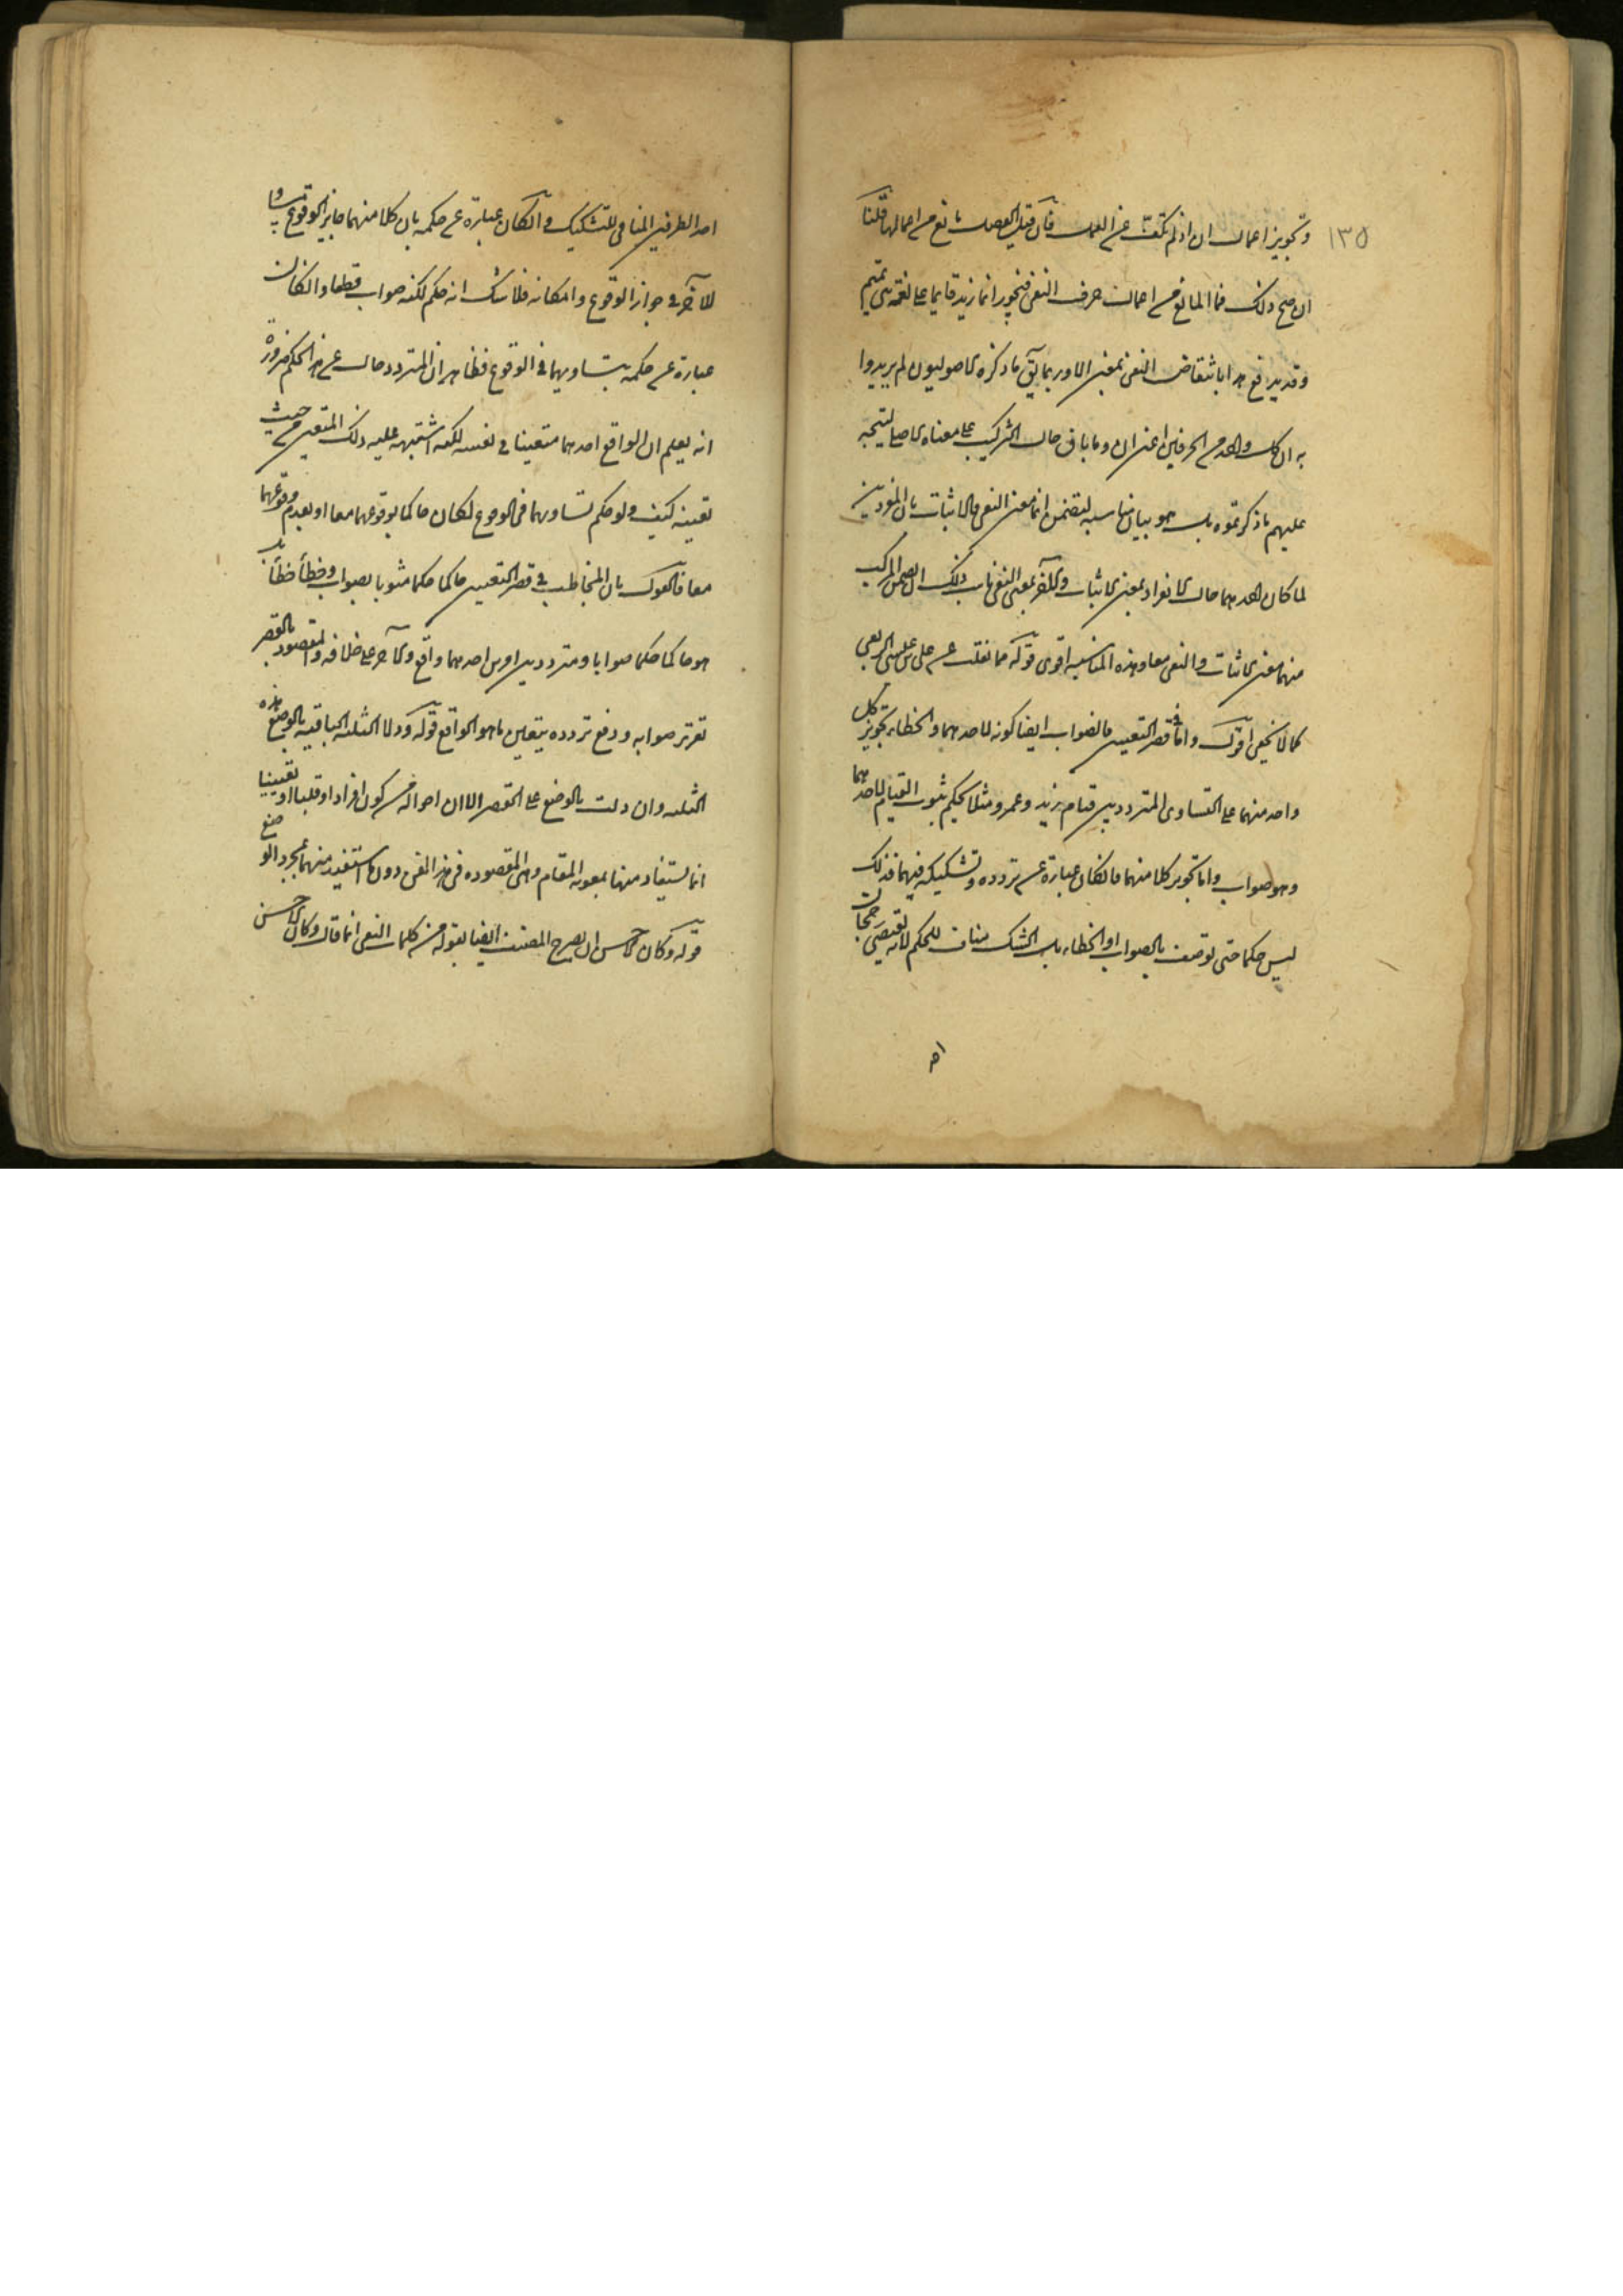 ١٣٥
وتجويز اعمال ان اذ لم تكف عن العمل فان قيل الفصل مانع من اعمالها قلنا
ان صح ذلك فما المانع من اعمال حرف النفى فيجوز انما زيد قايما على لغة بنى تميم
وقد يدفع هذا بانتقاض النفى بمعنى الا وربما يق ما ذكره الاصوليون لم يريدوا
به ان كل واحد من الحرفين اعنى ان وما باق حال التركيب على معناه الاصلى ليتجه
عليهم ما ذكرتموه بل هو بيان مناسبه لتضمن انما معنى النفى والاثبات بان المفردين
لما كان احدهما حال الانفراد بمعنى الاثبات والآخر بمعنى النفى ناسب ذلك ان يضمن المركب
منهما معنى الاثبات والنفى معا وهذه المناسبه اقوى قوله مما نقلت عن على بن عيسى الربعى
كما لا يخفى اقول واما فى قصر التعيين فالصواب ايضا كونه لاحدهما والخطاء تجويز كل
واحد منهما على التساوى المتردد بين قيام زيد وعمرو مثلا يحكم بثبوت القيام لاحدهما
وهو صواب واما تجويز كلا منهما فان كان عبارة عن تردده وتشكيكه فيهما فذلك
ليس حكما حتى توصف بالصواب او الخطاء بل الشك مناف للحكم لانه يقتضى رجحان
احد
احد الطرفين المنافى للتشكيك وان كان عبارة عن حكمه بان كلا منهما جايز الوقوع مساويا
للآخر فى جواز الوقوع وامكانه فلا شك انه حكم لكنه صواب قطعا وان كان
عبارة عن حكمه بتساويهما فى الوقوع فظاهر ان المتردد خال عن هذا الحكم ضرورة
انه يعلم ان الواقع احدهما متعينا فى نفسه لكنه اشتبهه عليه ذلك المتعين من حيث
تعينه كيف ولو حكم تساويهما فى الوقوع لكان حاكما بوقوعهما معا او بعدم وقوعهما
معا فالقول بان المخاطب فى قصر التعيين حاكما حكما مشوبا بصواب وخطأ خطأ بل
هو حاكما حكما صوابا ومتردد بين احدهما واقع والآخر على خلافه والمقصود بالقصر
تقرير صوابه ودفع تردده بتعيين ما هو الواقع قوله ودلا الثلثه الباقيه بالوضع هذه
الثلثه وان دلت بالوضع على القصر الا ان احواله من كون افراد او قلبا او تعيينا
انما يستفاد منها بمعونه المقام وهى المقصوده فى هذا الفن دون ما استفيد منهما بمجرد الوضع
قوله وكان الاحسن ان يصرح المصنف ايضا بقوله من كلمات النفى انما قال وكان الاحسن